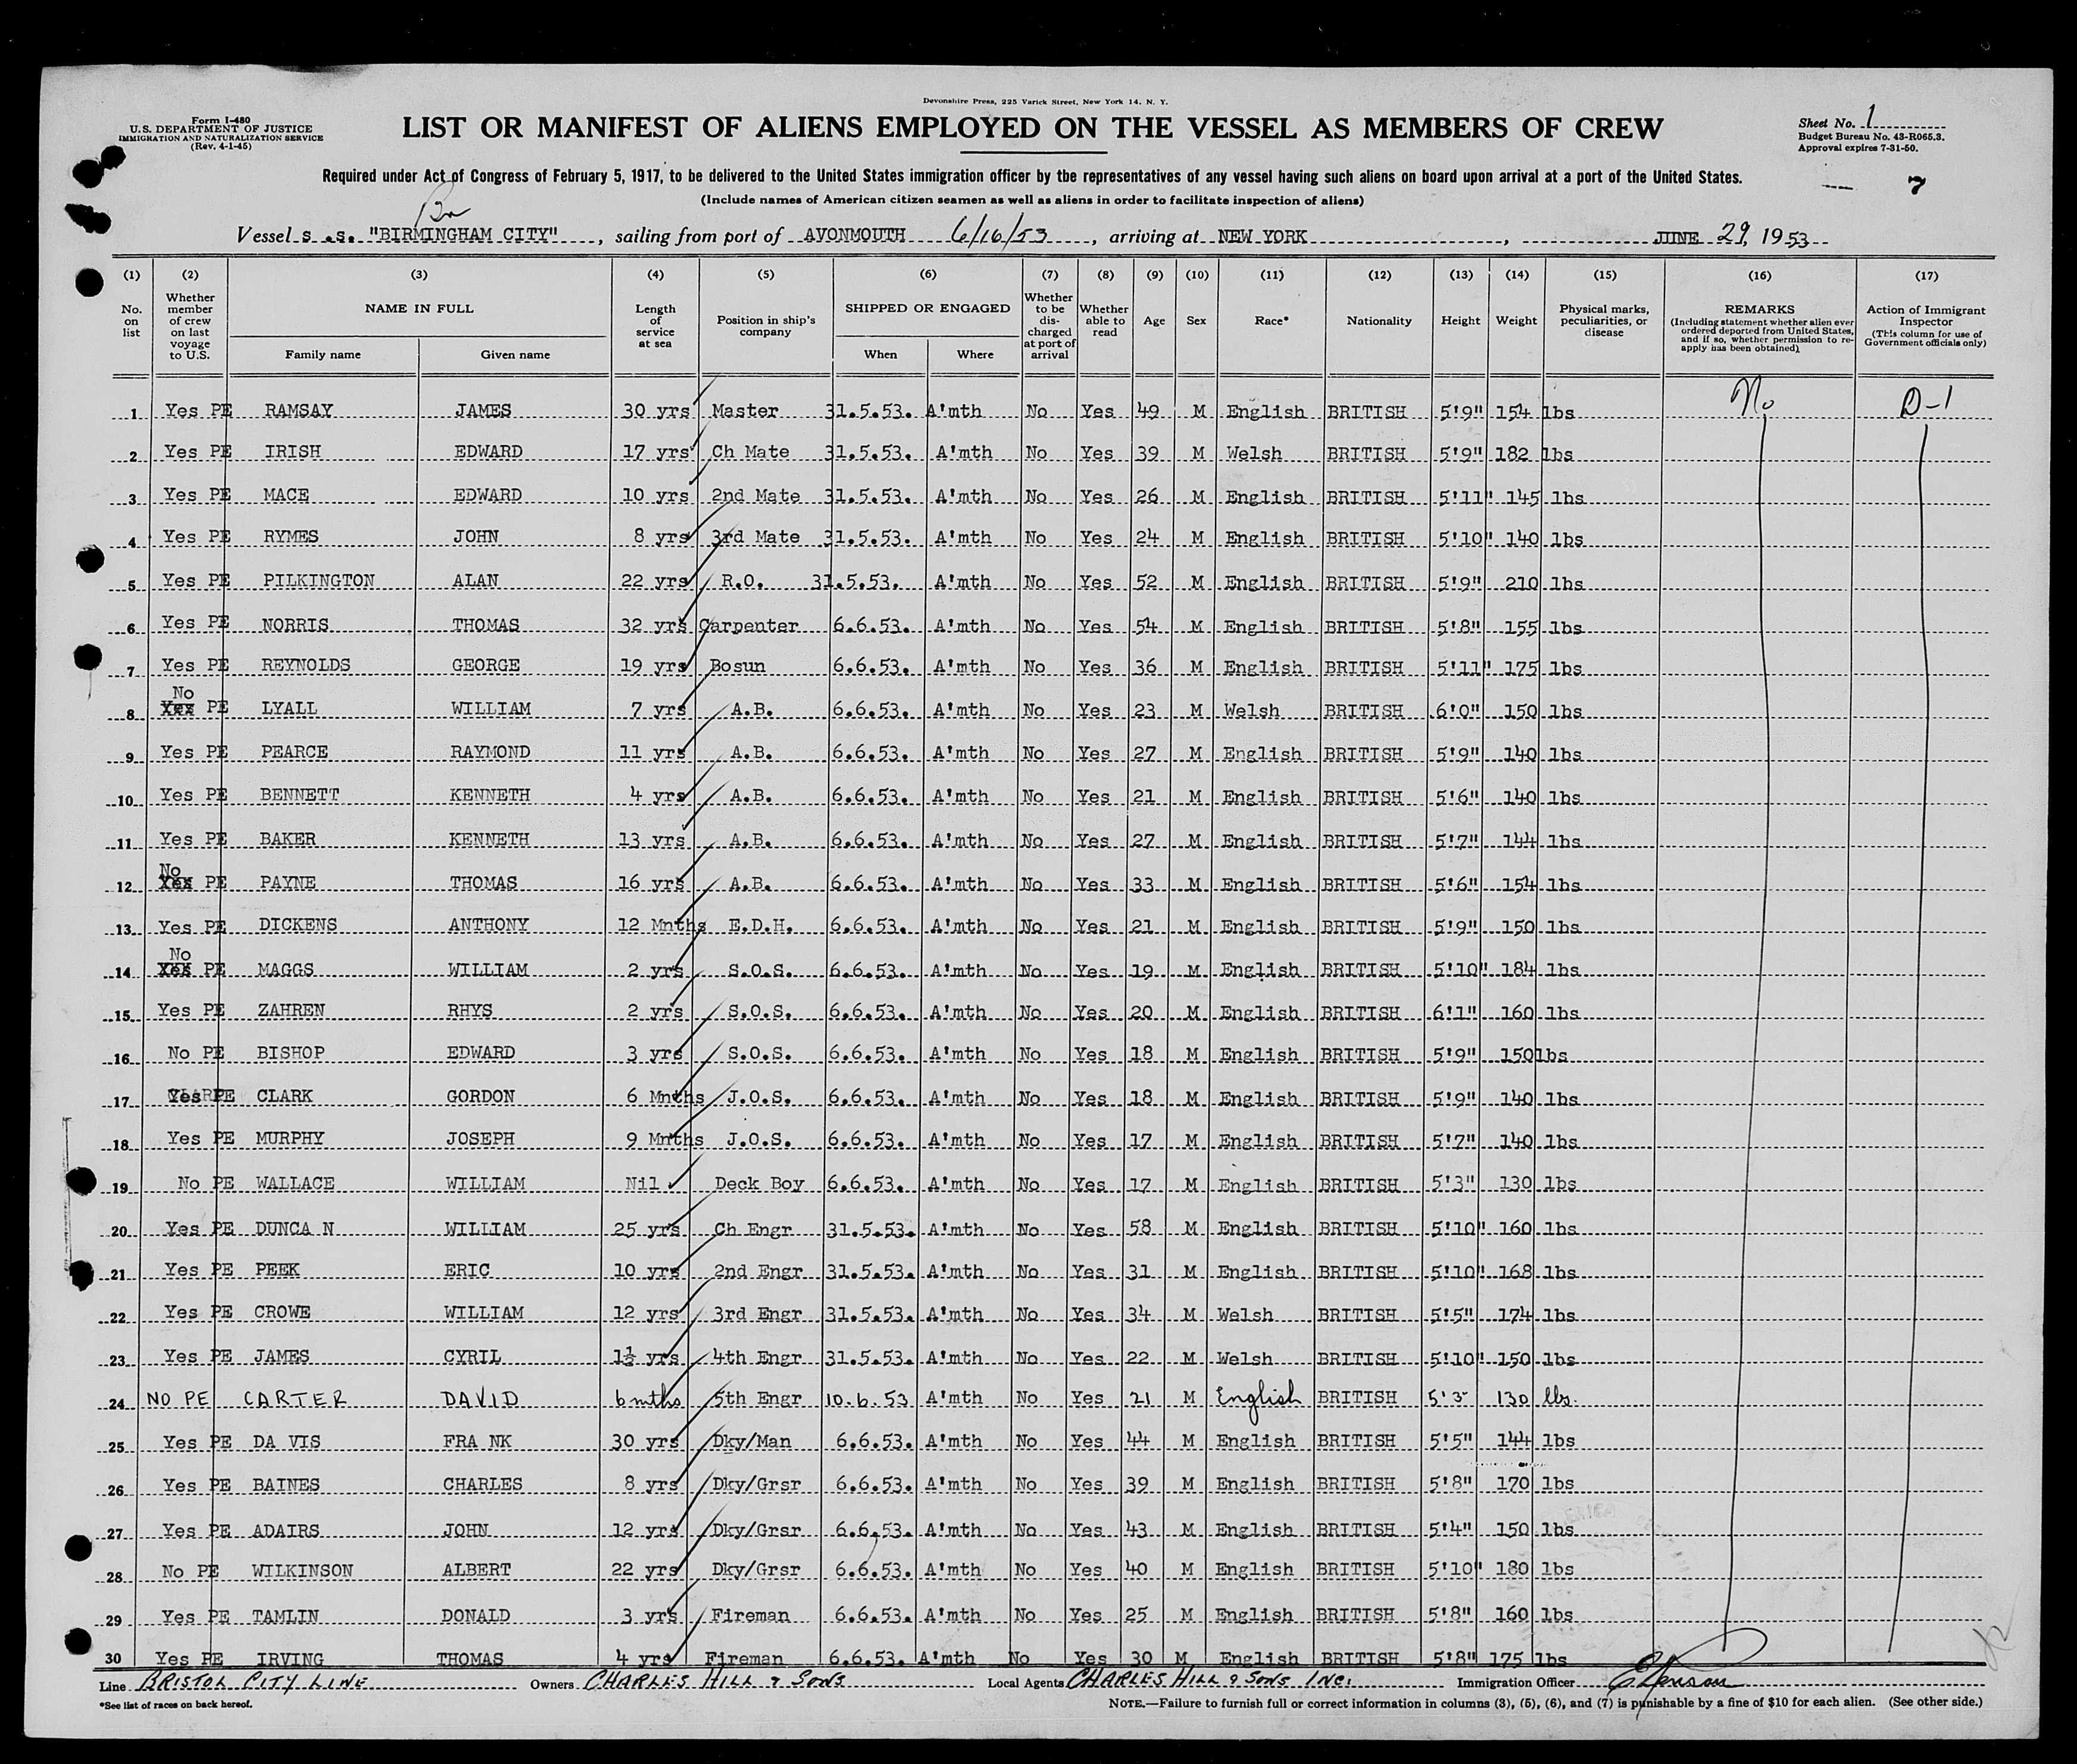 Devonshire Press, 225 Varick Street, New York 14, N. Y.
Form I-480
U.S. DEPARTMENT OF JUSTICE
IMMIGRATION AND NATURALIZATION SERVICE
(Rev. 4-1-45)
LIST OR MANIFEST OF ALIENS EMPLOYED ON THE VESSEL AS MEMBERS OF CREW
Sheet No. 1
Budget Bureau No. 43-R065.3.
Approval expires 7-31-50.
Required under Act of Congress of February 5, 1917, to be delivered to the United States immigration officer by the representatives of any vessel having such aliens on board upon arrival at a port of the United States.
7
(Include names of American citizen seamen as well as aliens in order to facilitate inspection of aliens)
Br
Vessel s .s. "BIRMINGHAM CITY", sailing from port of AVONMOUTH 6/16/53, arriving at NEW YORK, JUNE 29, 1953
(1) (2) (3) (4) (5) (6) (7) (8) (9) (10) (11) (12) (13) (14) (15) (16) (17)
No. on list
Whether member of crew on last voyage to U.S.
NAME IN FULL
Family name Given name
Length of service at sea
Position in ship's company
SHIPPED OR ENGAGED
When Where
Whether to be discharged at port of arrival
Whether able to read
Age
Sex
Race*
Nationality
Height
Weight
Physical marks, peculiarities, or disease
REMARKS
(Including statement whether alien ever ordered deported from United States, and if so, whether permission to re-apply has been obtained)
Action of Immigrant Inspector
(This column for use of Government officials only)
1 Yes PE RAMSAY JAMES 30 yrs Master 31.5.53. A'mth No Yes 49 M English BRITISH 5'9" 154 lbs No D-1
2 Yes PE IRISH EDWARD 17 yrs Ch Mate 31.5.53. A'mth No Yes 39 M Welsh BRITISH 5'9" 182 lbs
3 Yes PE MACE EDWARD 10 yrs 2nd Mate 31.5.53. A'mth No Yes 26 M English BRITISH 5'11" 145 lbs
4 Yes PE RYMES JOHN 8 yrs 3rd Mate 31.5.53. A'mth No Yes 24 M English BRITISH 5'10" 140 lbs
5 Yes PE PILKINGTON ALAN 22 yrs R.O. 31.5.53. A'mth No Yes 52 M English BRITISH 5'9" 210 lbs
6 Yes PE NORRIS THOMAS 32 yrs Carpenter 6.6.53. A'mth No Yes 54 M English BRITISH 5'8" 155 lbs
7 Yes PE REYNOLDS GEORGE 19 yrs Bosun 6.6.53. A'mth No Yes 36 M English BRITISH 5'11" 175 lbs
8 No Yes PE LYALL WILLIAM 7 yrs A.B. 6.6.53. A'mth No Yes 23 M Welsh BRITISH 6'0" 150 lbs
9 Yes PE PEARCE RAYMOND 11 yrs A.B. 6.6.53. A'mth No Yes 27 M English BRITISH 5'9" 140 lbs
10 Yes PE BENNETT KENNETH 4 yrs A.B. 6.6.53. A'mth No Yes 21 M English BRITISH 5'6" 140 lbs
11 Yes PE BAKER KENNETH 13 yrs A.B. 6.6.53. A'mth No Yes 27 M English BRITISH 5'7" 144 lbs
12 No Yes PE PAYNE THOMAS 16 yrs A.B. 6.6.53. A'mth No Yes 33 M English BRITISH 5'6" 154 lbs
13 Yes PE DICKENS ANTHONY 12 Mnths E.D.H. 6.6.53. A'mth No Yes 21 M English BRITISH 5'9" 150 lbs
14 No Yes PE MAGGS WILLIAM 2 yrs S.O.S. 6.6.53. A'mth No Yes 19 M English BRITISH 5'10" 184 lbs
15 Yes PE ZAHREN RHYS 2 yrs S.O.S. 6.6.53. A'mth No Yes 20 M English BRITISH 6'1" 160 lbs
16 No PE BISHOP EDWARD 3 yrs S.O.S. 6.6.53. A'mth No Yes 18 M English BRITISH 5'9" 150lbs
17 Yes PE CLARK GORDON 6 Mnths J.O.S. 6.6.53. A'mth No Yes 18 M English BRITISH 5'9" 140 lbs
18 Yes PE MURPHY JOSEPH 9 Mnths J.O.S. 6.6.53. A'mth No Yes 17 M English BRITISH 5'7" 140 lbs
19 No PE WALLACE WILLIAM Nil Deck Boy 6.6.53. A'mth No Yes 17 M English BRITISH 5'3" 130 lbs
20 Yes PE DUNCA N WILLIAM 25 yrs Ch Engr 31.5.53. A'mth No Yes 58 M English BRITISH 5'10" 160 lbs
21 Yes PE PEEK ERIC 10 yrs 2nd Engr 31.5.53. A'mth No Yes 31 M English BRITISH 5'10" 168 lbs
22 Yes PE CROWE WILLIAM 12 yrs 3rd Engr 31.5.53. A'mth No Yes 34 M Welsh BRITISH 5'5" 174 lbs
23 Yes PE JAMES CYRIL 1½ yrs 4th Engr 31.5.53. A'mth No Yes 22 M Welsh BRITISH 5'10" 150 lbs
24 NO PE CARTER DAVID 6 mths 5th Engr 10.6.53 A'mth No Yes 21 M English BRITISH 5'3" 130 lbs.
25 Yes PE DA VIS FRA NK 30 yrs Dky/Man 6.6.53. A'mth No Yes 44 M English BRITISH 5'5" 144 lbs
26 Yes PE BAINES CHARLES 8 yrs Dky/Grsr 6.6.53. A'mth No Yes 39 M English BRITISH 5'8" 170 lbs
27 Yes PE ADAIRS JOHN 12 yrs Dky/Grsr 6.6.53. A'mth No Yes 43 M English BRITISH 5'4" 150 lbs
28 No PE WILKINSON ALBERT 22 yrs Dky/Grsr 6.6.53. A'mth No Yes 40 M English BRITISH 5'10" 180 lbs
29 Yes PE TAMLIN DONALD 3 yrs Fireman 6.6.53. A'mth No Yes 25 M English BRITISH 5'8" 160 lbs
30 Yes PE IRVING THOMAS 4 yrs Fireman 6.6.53. A'mth No Yes 30 M English BRITISH 5'8" 175 lbs
Line BRISTOL CITY LINE Owners CHARLES HILL & SONS Local Agents CHARLES HILL & SONS INC. Immigration Officer
*See list of races on back hereof.
NOTE.—Failure to furnish full or correct information in columns (3), (5), (6), and (7) is punishable by a fine of $10 for each alien. (See other side.)